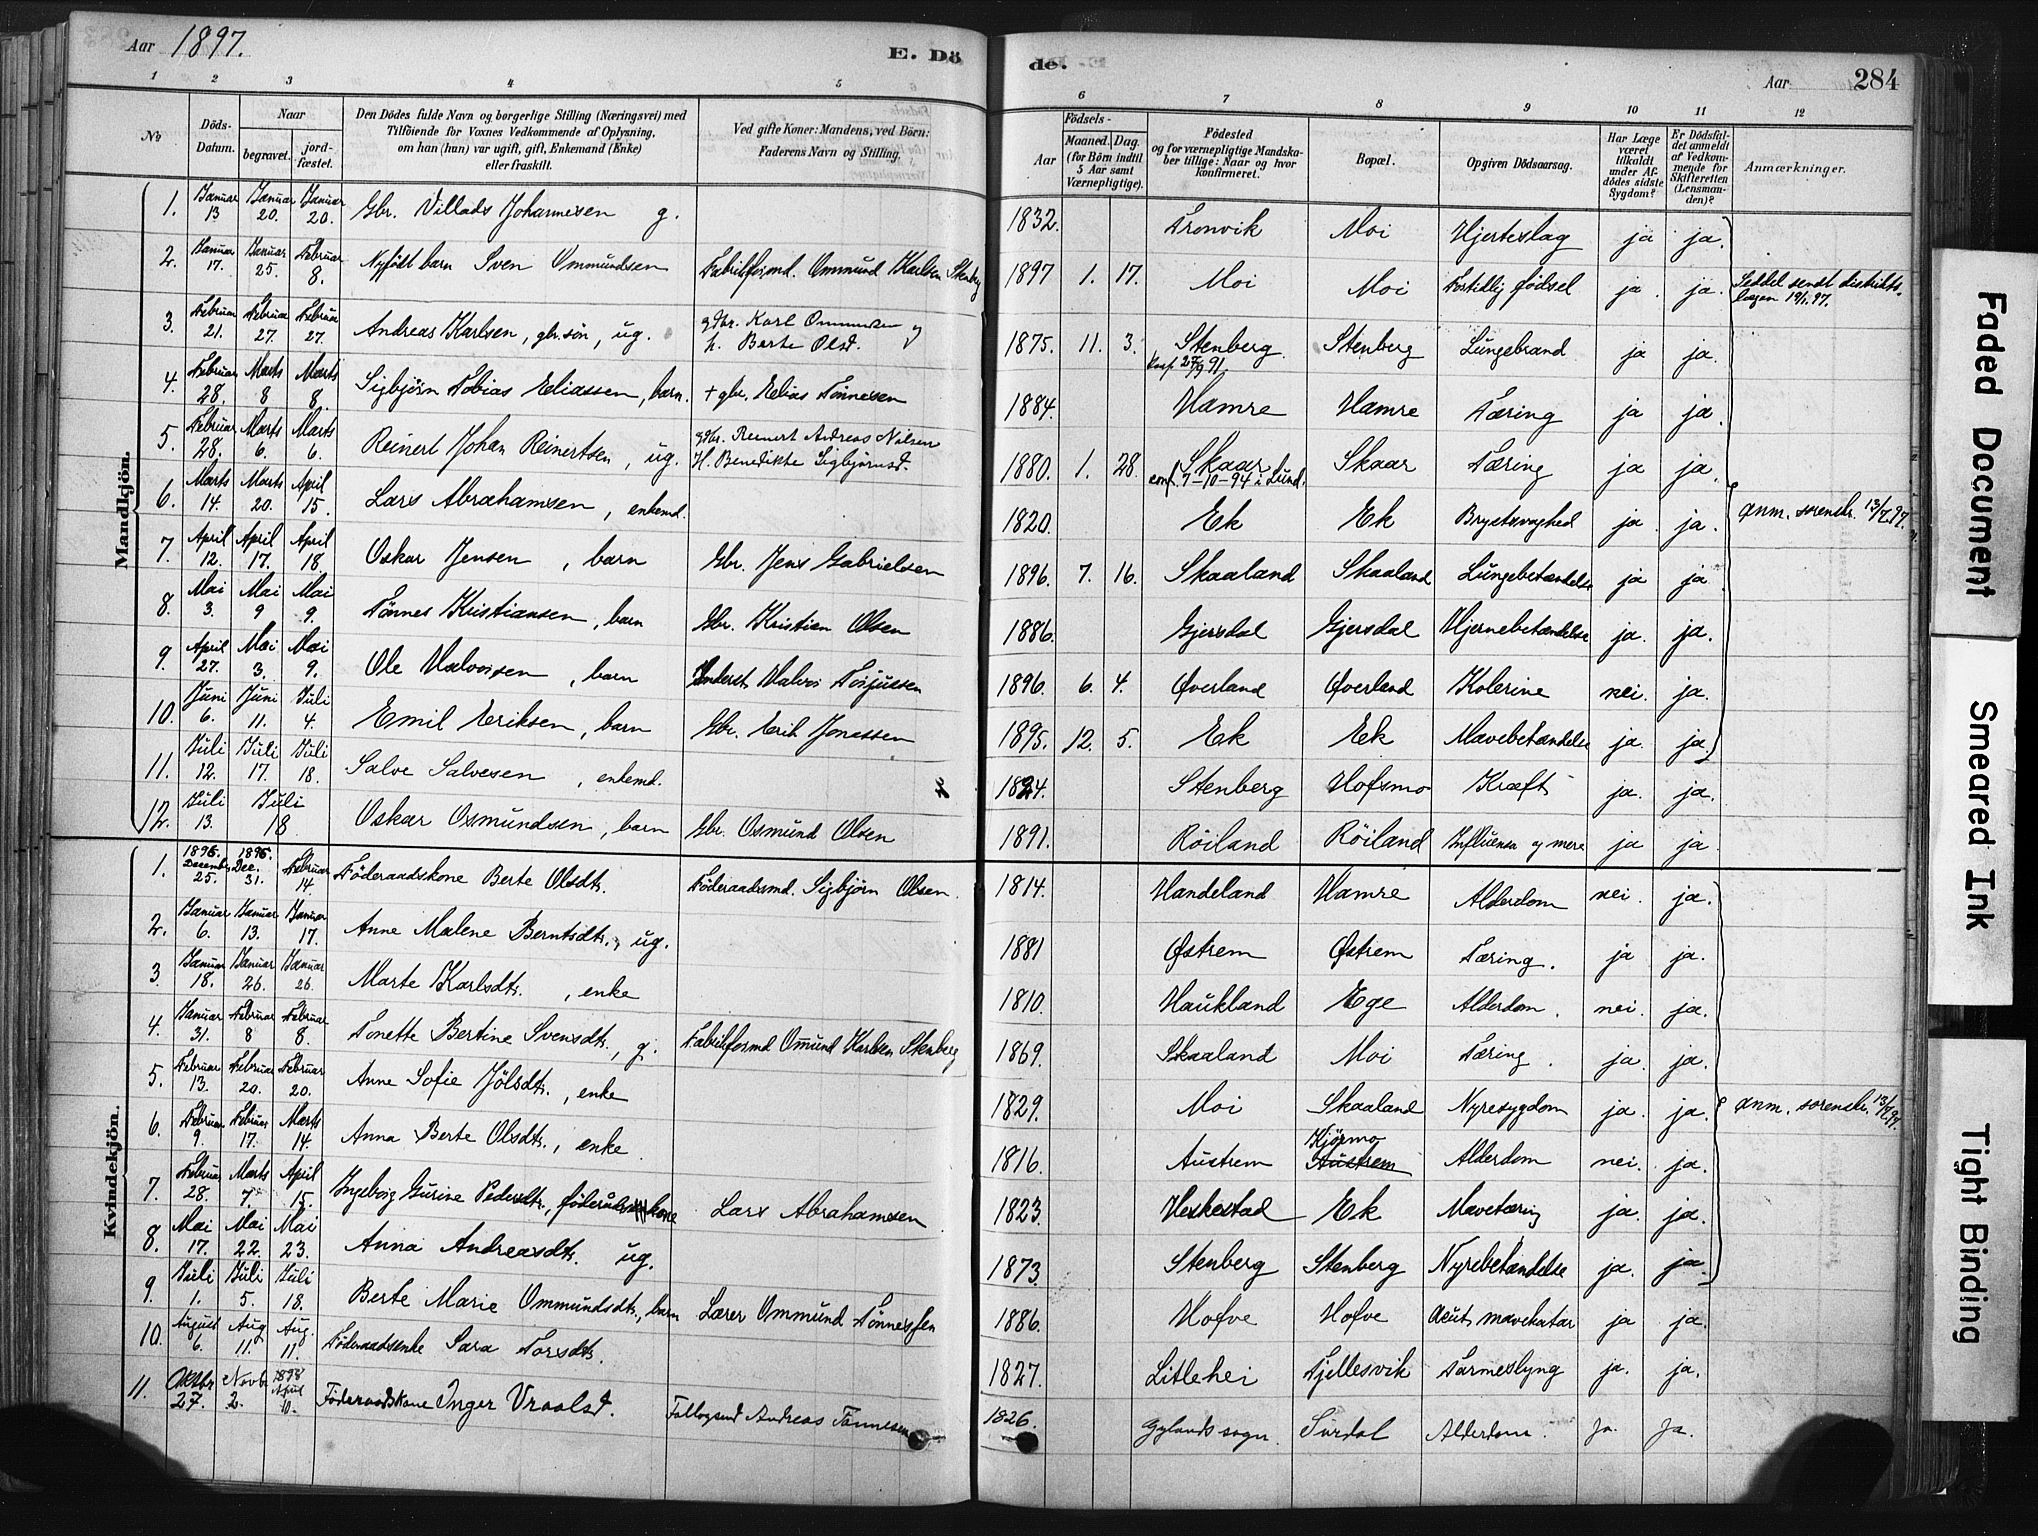 Aar 1897. E. Dö de. Aar 284
1 2 3 4 5 6 7 8 9 10 11 12
№ Döds-Datum. Naar begravet. jord-fæstet. Den Dödes fulde Navn og borgerlige Stilling (Næringsvei) med Tilföiende for Voxnes Vedkommende af Oplysning, om han (hun) var ugift, gift, Enkemand (Enke) eller fraskilt. Ved gifte Koner: Mandens, ved Börn: Faderens Navn og Stilling. Födsels- Aar Maaned. Dag. (for Börn indtil 5 Aar samt Værnepligtige). Födested og for værnepligtige Mandskaber tillige: Naar og hvor konfirmeret. Bopæl. Opgiven Dödsaarsag. Har Læge været tilkaldt under Afdödes sidste Sygdom? Er Dödsfaldet anmeldt af Vedkommende for Skifteretten (Lensmanden)? Anmærkninger.
Mandkjön.
1. Januar 13 Januar 20. Januar 20. Gbr. Villads Johannesen g. 1832. Tronvik Moi Hjerteslag ja ja.
2. Januar 17. Januar 25. Februar 8. Nyfödt barn Sven Ommundsen Fabrikformd. Ommund Karlsen Stenberg 1897 1. 17. Moi Moi Fortidlig fødsel ja ja. Seddel sendt distrikts-lægen 19/1.97.
3. Februar 21. Februar 27. Februar 27. Andreas Karlsen, gbr. sön, ug. gdbr. Karl Ommundsen og h. Berte Olsd. 1875. 11. 3. Stenberg Conf. 27/9 91. Stenberg Lungebrand ja ja.
4. Februar 28. Marts 8 Marts 8. Sigbjörn Tobias Eliassen, barn. + gbr. Elias Tönnesen 1884. Hamre Hamre Tæring ja ja
5. Februar 28. Marts 6. Marts 6. Reinert Johan Reinertsen, ug. gdbr. Reinert Andreas Nilsen H. Benedikte Sigbjörnsd. 1880. 1. 28 Skaar conf. 7-10-94 i Lund. Skaar Tæring ja ja.
6. Marts 14. Marts 20. April 15. Lars Abrahamsen, enkemd. 1820. Ek Ek Brystsvaghed ja ja. Anm. sorenskr. 13/7.97.
7. April 12. April 17. April 18. Oskar Jensen, barn Gbr. Jens Gabrielsen 1896. 7. 16. Skaaland Skaaland Lungebetændelse ja ja
8. Mai 3. Mai 9 Mai 9. Tönnes Kristiansen, barn Gbr. Kristian Olsen 1886. Gjersdal Gjersdal Hjernebetændelse ja. ja.
9. April 27. Mai 3. Mai 9. Ole Halvorsen, barn Inderst Halvor Torjussen 1896. 6. 4. Øverland Øverland Kolerine nei. ja.
10. Juni 6. Juni 11. Juli 4. Emil Eriksen, barn Gbr. Erik Jonassen 1895. 12. 5. Ek Ek Mavebetændelse ja. ja.
11. Juli 12. Juli 17. Juli 18. Salve Salvesen, enkemd. 1824. Stenberg Hofsmo Kræft ja. ja.
12. Juli 13. Juli 18 Oskar Osmundsen, barn Gbr. Osmund Olsen 1891. Röiland Röiland Influensa og mere ja ja
Kvindekjön.
1. 1896. Decemb. 25. 1896. Dec. 31. Februar 14 Föderaadskone Berte Olsdtr. Föderaadsmd. Sigbjörn Olsen. 1814. Handeland Hamre Alderdom nei. ja.
2. Januar 6. Januar 13. Januar 17. Anne Malene Berntsdtr., ug. 1881 Østrem Østrem Tæring. ja ja.
3. Januar 18. Januar 26. Januar 26. Marte Karlsdtr., enke 1810. Haukland Ege Alderdom. nei. ja.
4. Januar 31. Februar 8 Februar 8. Tonette Bertine Svensdtr., g. Fabrikformd Ommund Karlsen Stenberg 1869. Skaaland Moi Tæring. ja. ja.
5. Februar 13. Februar 20. Februar 20. Anne Sofie Jölsdtr., enke 1829. Moi Skaaland Nyresygdom ja. ja. Anm. sorenskr. 13/7.97.
6. Februar 9. Februar 17. Marts 14. Anna Berte Olsdtr., enke 1816. Austrem Kjörmo Austrem Alderdom nei. ja.
7. Februar 28. Marts 7. April 15. Ingeborg Gurine Pedersdtr., föderaadskone Lars Abrahamsen 1823. Heskestad Ek Mavetæring ja. ja.
8. Mai 17. Mai 22. Mai 23. Anna Andreasdtr. ug. 1873. Stenberg Stenberg Nyrebetændelse ja. ja.
9. Juli 1. Juli 5. Juli 18. Berte Marie Ommundsdtr., barn Lærer Ommund Tönnessen 1886. Hofve Hofve Acut mavekatar ja ja.
10. August 6. Aug 11. Aug. 11. Föderaadsenke Sara Torsdtr. 1827. Litlehei Fjellesvik Tarmeslyng ja. ja.
11. Oktbr 27. Novbr 2. 1898 April 10. Föderaadskone Inger Vraalsd. Follogsmd Andreas Tönnesen 1826. Gylands sogn. Surdal Alderdom. Ja. Ja.
Faded Document
Smeared Ink
Tight Binding